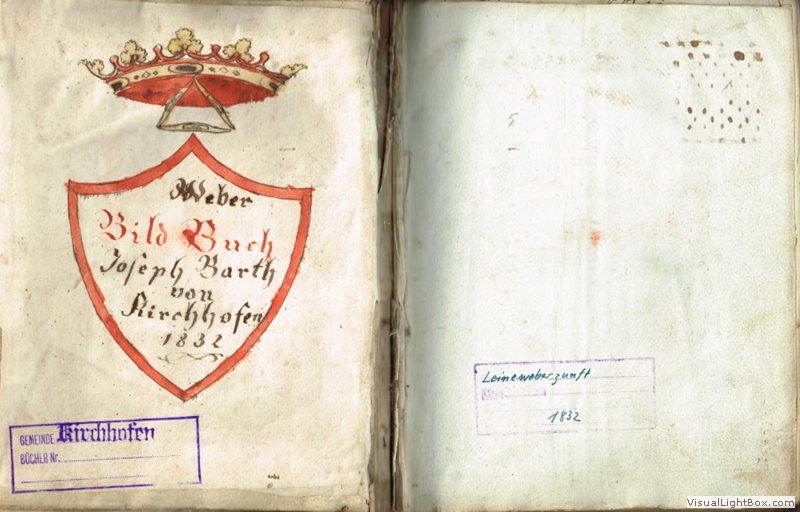 Weber
Bild Buch
Joseph Barth
von
Kirchhofen
1832
GEMEINDE Kirchhofen
BÜCHER Nr.
Leineweberzunft
1832
VisualLightBox.com